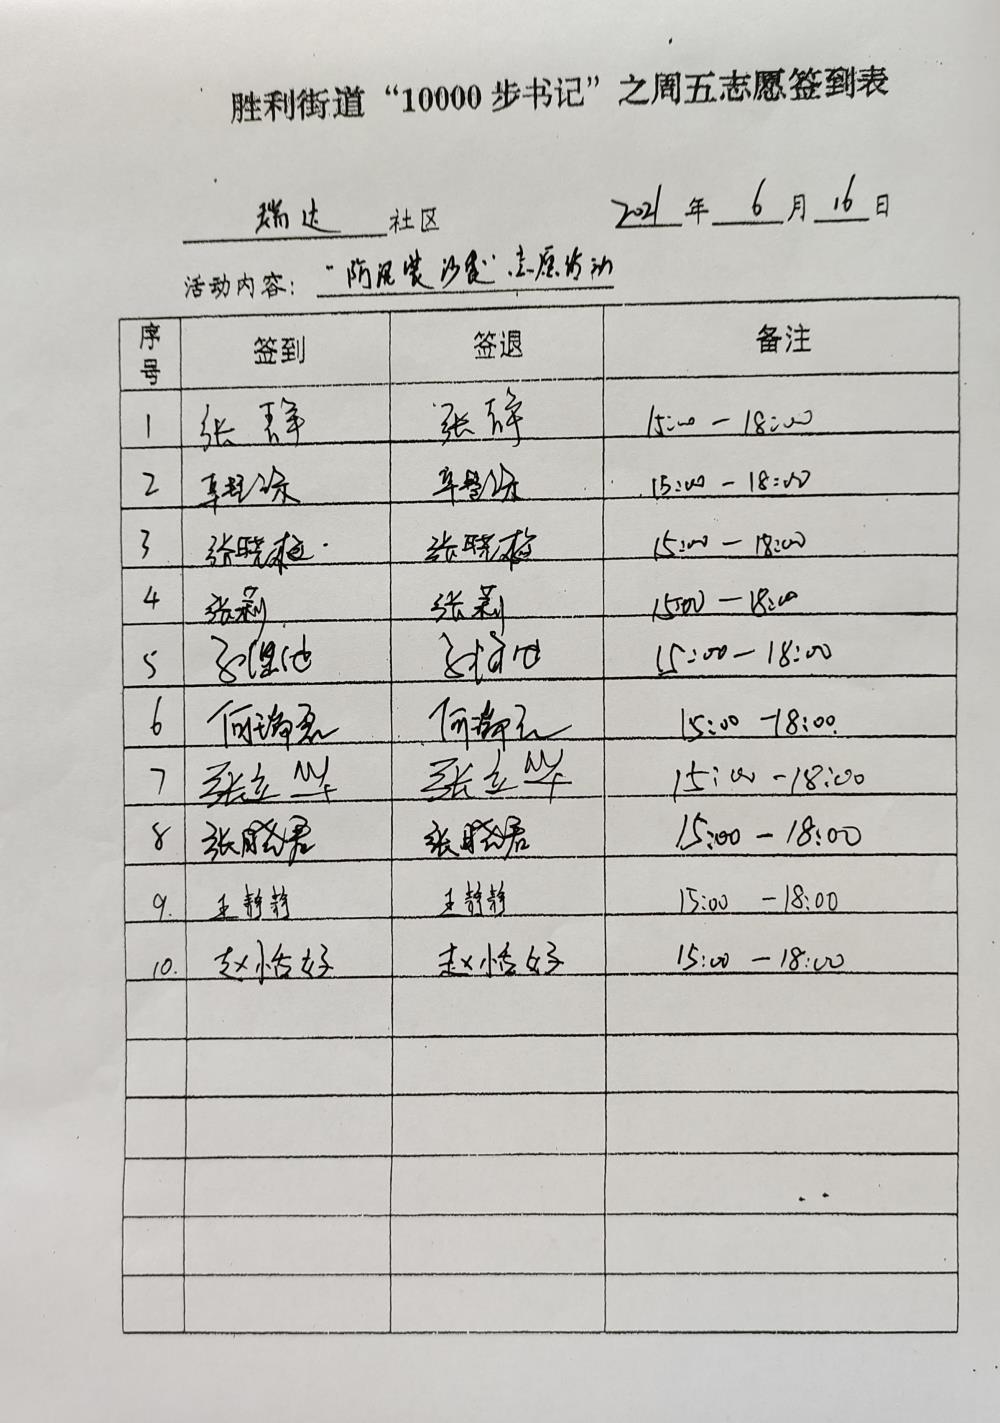 胜利街道“10000步书记”之周五志愿签到表
瑞达 社区 2021年 6 月 16 日
活动内容： “防汛装沙袋”志愿活动
序号 签到 签退 备注
1 张静 张静 15:00 - 18:00
2 15:00 - 18:00
3 张晓梅 张晓梅 15:00 - 18:00
4 张莉 张莉 15:00 - 18:00
5 15:00 - 18:00
6 何瑞 何瑞 15:00 - 18:00.
7 张立华 张立华 15:00 - 18:00
8 张晓君 张晓君 15:00 - 18:00
9. 王静静 王静静 15:00 - 18:00
10. 赵恬好 赵恬好 15:00 - 18:00